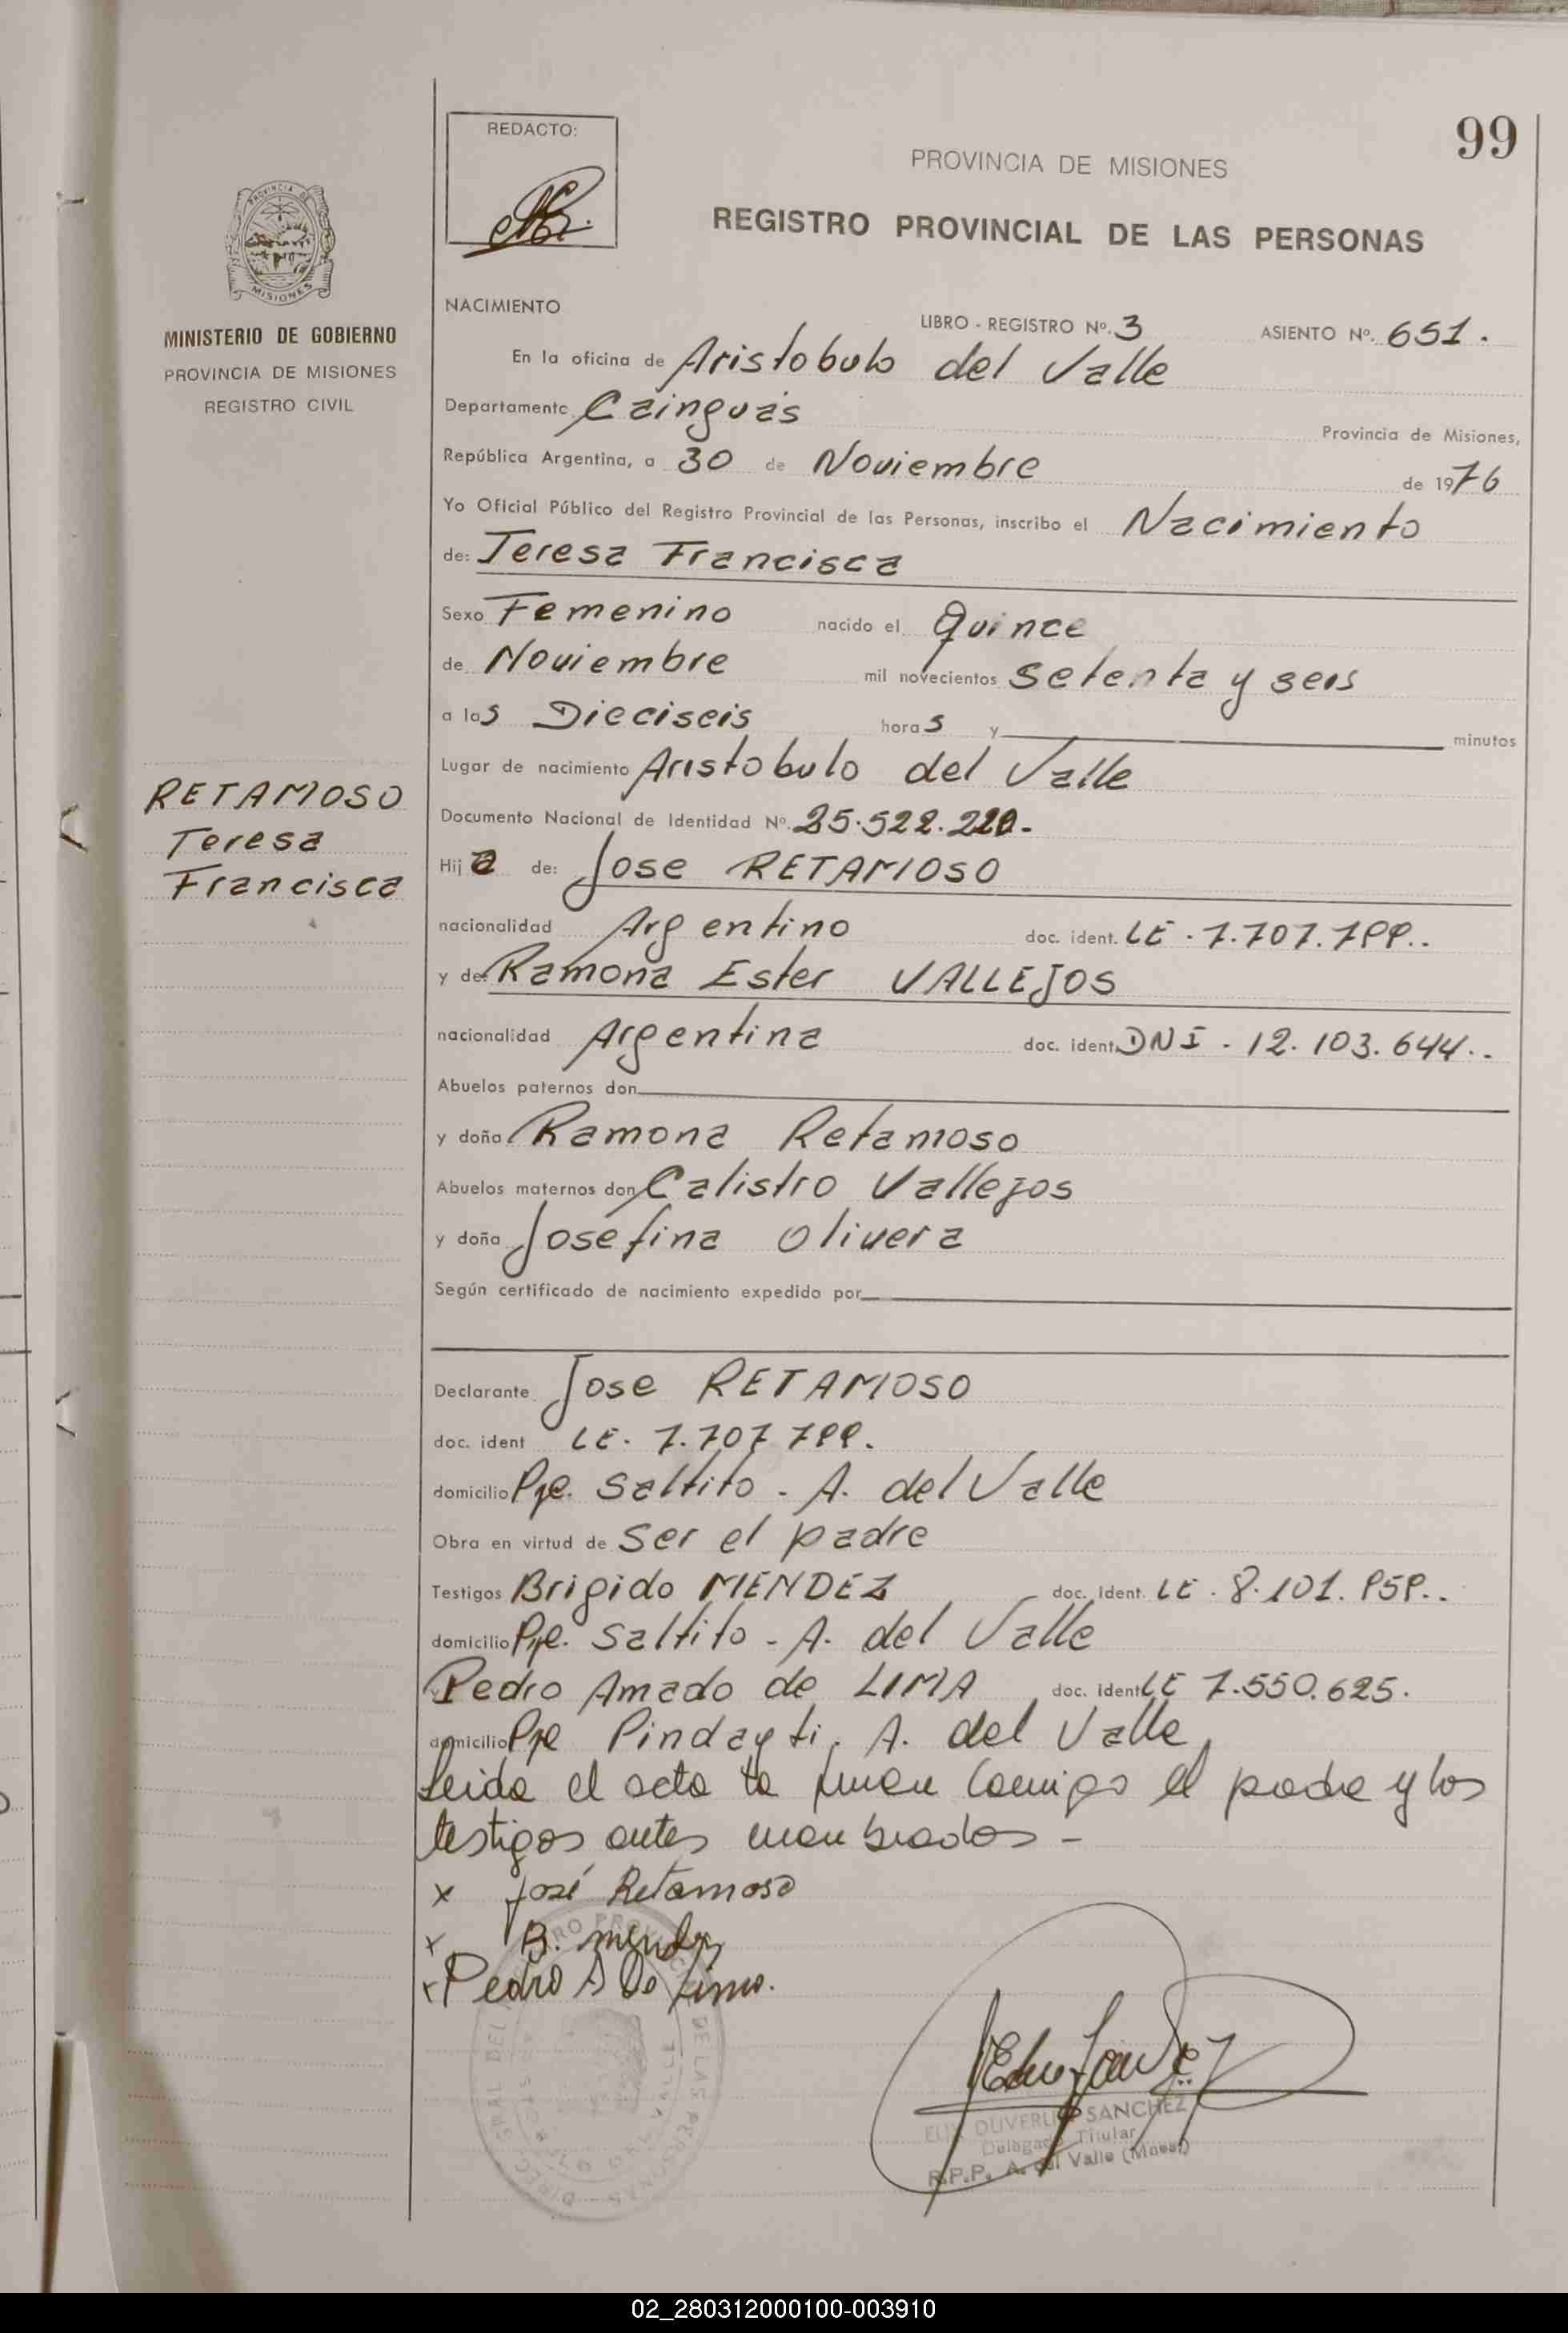 99
REDACTO:
PROVINCIA DE MISIONES
REGISTRO PROVINCIAL DE LAS PERSONAS
PROVINCIA DE
MISIONES
MINISTERIO DE GOBIERNO
PROVINCIA DE MISIONES
REGISTRO CIVIL
RETAMOSO
Teresa
Francisca
NACIMIENTO
LIBRO - REGISTRO Nº. 3 ASIENTO Nº. 651.
En la oficina de Aristobulo del Valle
Departamento Cainguás
Provincia de Misiones,
República Argentina, a 30 de Noviembre de 1976
Yo Oficial Público del Registro Provincial de las Personas, inscribo el Nacimiento
de: Teresa Francisca
Sexo Femenino nacido el Quince
de Noviembre mil novecientos setenta y seis
a las Dieciseis horas y minutos
Lugar de nacimiento Aristobulo del Valle
Documento Nacional de Identidad Nº. 25.522.220.-
Hija de: Jose RETAMOSO
nacionalidad Argentino doc. ident. LE. 7.707.799..
y de: Ramona Ester VALLEJOS
nacionalidad Argentina doc. ident. DNI - 12.103.644..
Abuelos paternos don
y doña Ramona Retamoso
Abuelos maternos don Calistro Vallejos
y doña Josefina Olivera
Según certificado de nacimiento expedido por
Declarante Jose RETAMOSO
doc. ident LE. 7.707 799.
domicilio Pje. Saltito - A. del Valle
Obra en virtud de ser el padre
Testigos Brigido MENDEZ doc. ident. LE. 8.101.959..
domicilio Pje. Saltito - A. del Valle
Pedro Amado de LIMA doc. ident LE 7.550.625.
domicilio Pje Pindayti. A. del Valle
Leida el acta la firman Conmigo el padre y los
testigos antes mombrados -
x José Retamoso
x B. mendez
x Pedro A De Lima.
SANCHEZ
Delegado Titular
R.P.P. A. del Valle (Mnes.)
02_280312000100-003910